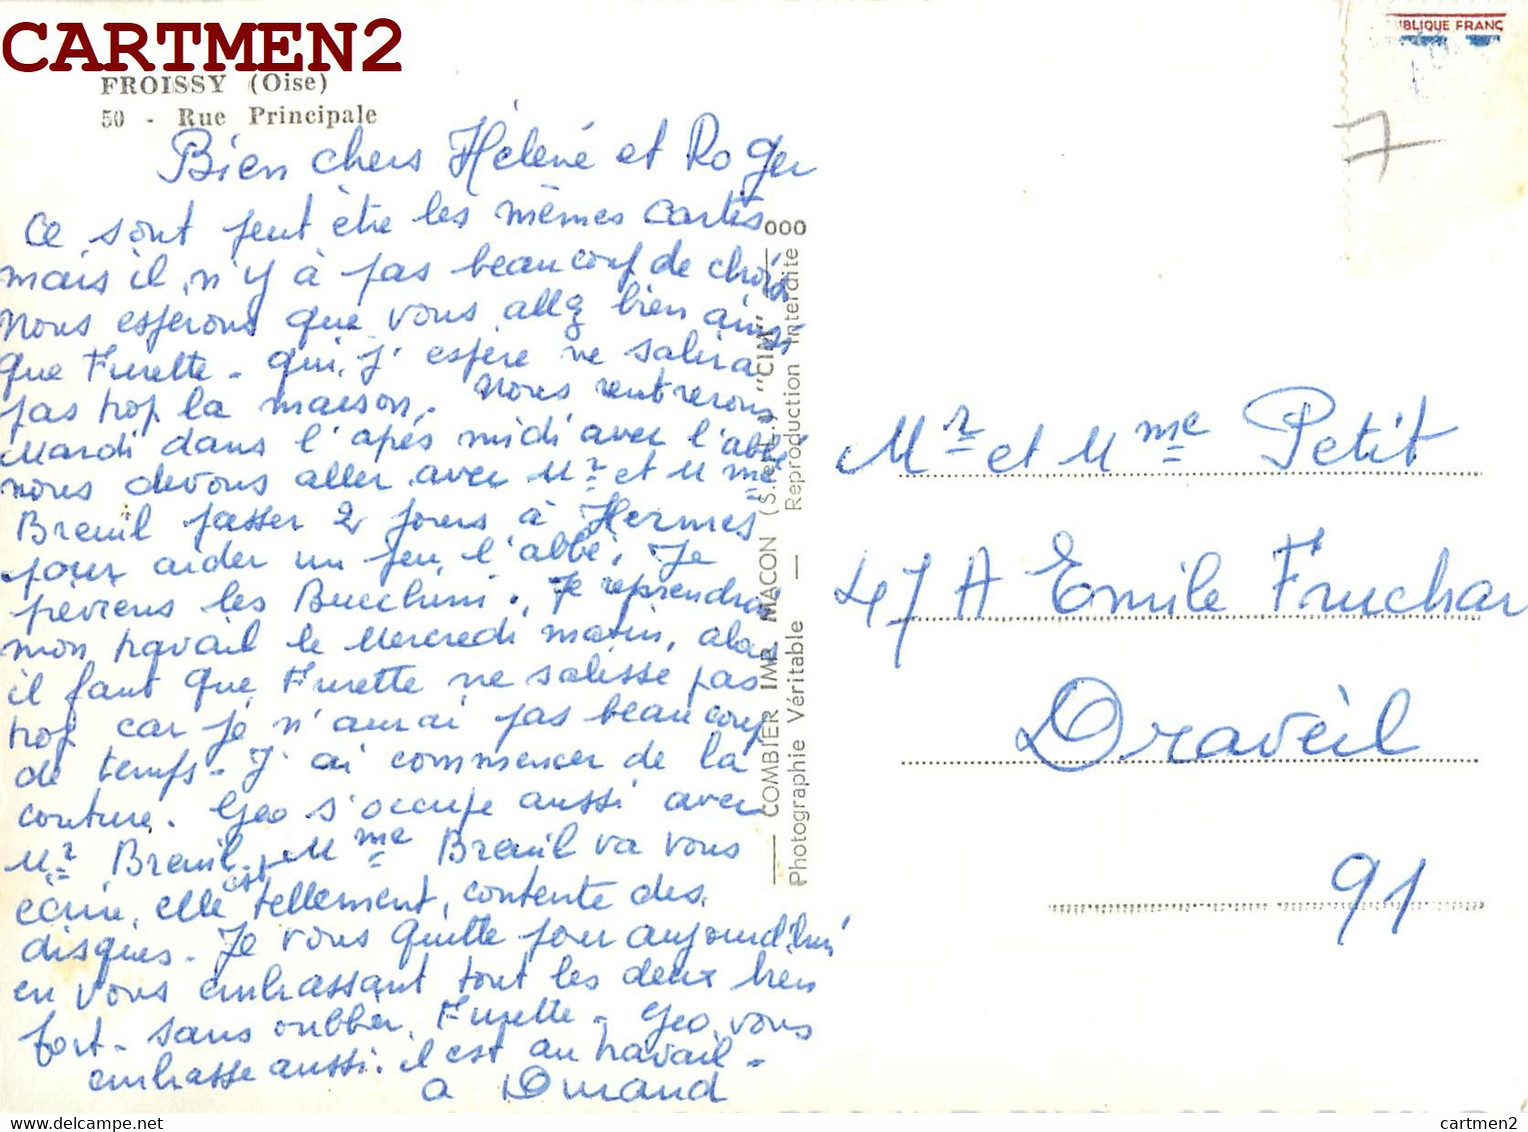 CARTMEN2
FROISSY (Oise)
50 - Rue Principale
Bien chers Hélène et Roger
Ce sont peut être les mêmes cartes
mais il n'y à pas beaucoup de choix
Nous esperons que vous allez bien ainsi
que Furette - qui, j'espère ne salira
pas trop la maison. Nous rentrerons
Mardi dans l'apés midi avec l'abbé
nous devons aller avec Mr et Mme
Breuil passer 2 jours à Hermes
pour aider un peu l'abbé. Je
préviens les Bucchini. Je reprendrai
mon travail le Mercredi matin, alors
il faut que Furette ne salisse pas
trop car je n'aurai pas beaucoup
de temps - J'ai commencer de la
couture. Géo s'occupe aussi avec
Mr Breuil. Mme Breuil va vous
écrire, elle est tellement contente des
disques - Je vous quitte pour aujourd'hui
en vous embrassant tout les deux bien
fort - sans oublier Furette - Géo vous
embrasse aussi. il est au travail -
a Durand
COMBIER IMP. MACON (S.-et-L.) "CIM"
Photographie Véritable — Reproduction Interdite
000
UBLIQUE FRANÇ
7
Mr et Mme Petit
47 A Emile Fruchar
Draveil
91
Delcampe.net
cartmen2